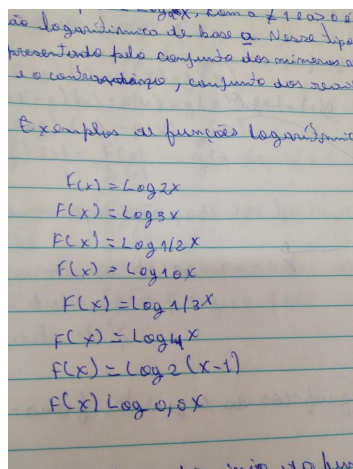 Log ax, com a ≠ 1 e a > 0 é
ão logarítmica de base a. Nesse tipo
presentado pelo conjunto dos números
e o contradomínio, conjunto dos reais
Exemplos de funções logarítmic
F(x) = Log2x
F(x) = Log3x
F(x) = Log1/2x
F(x) = Log10x
F(x) = Log1/3x
F(x) = Log4x
f(x) = Log2(x-1)
F(x) Log 0,5x